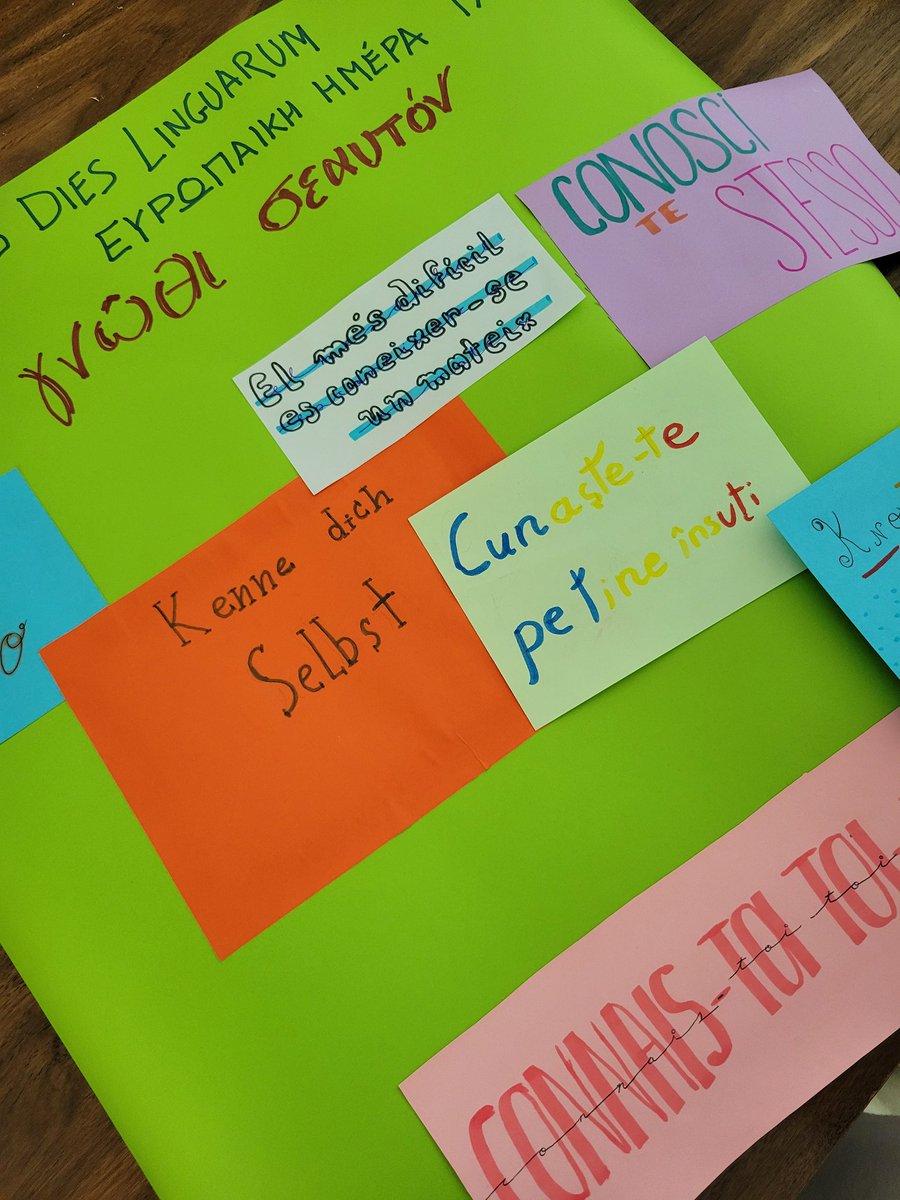 DIES LINGUARUM
ΕΥΡΩΠΑΙΚΗ ΗΜΈΡΑ
γνῶθι σεαυτόν
CONOSCI
TE STESSO
El més difícil
es coneixer-se
un mateix
Kenne dich
Selbst
Cunaşte-te
pe tine însuţi
CONNAIS-TOI TOI
connais-toi toi